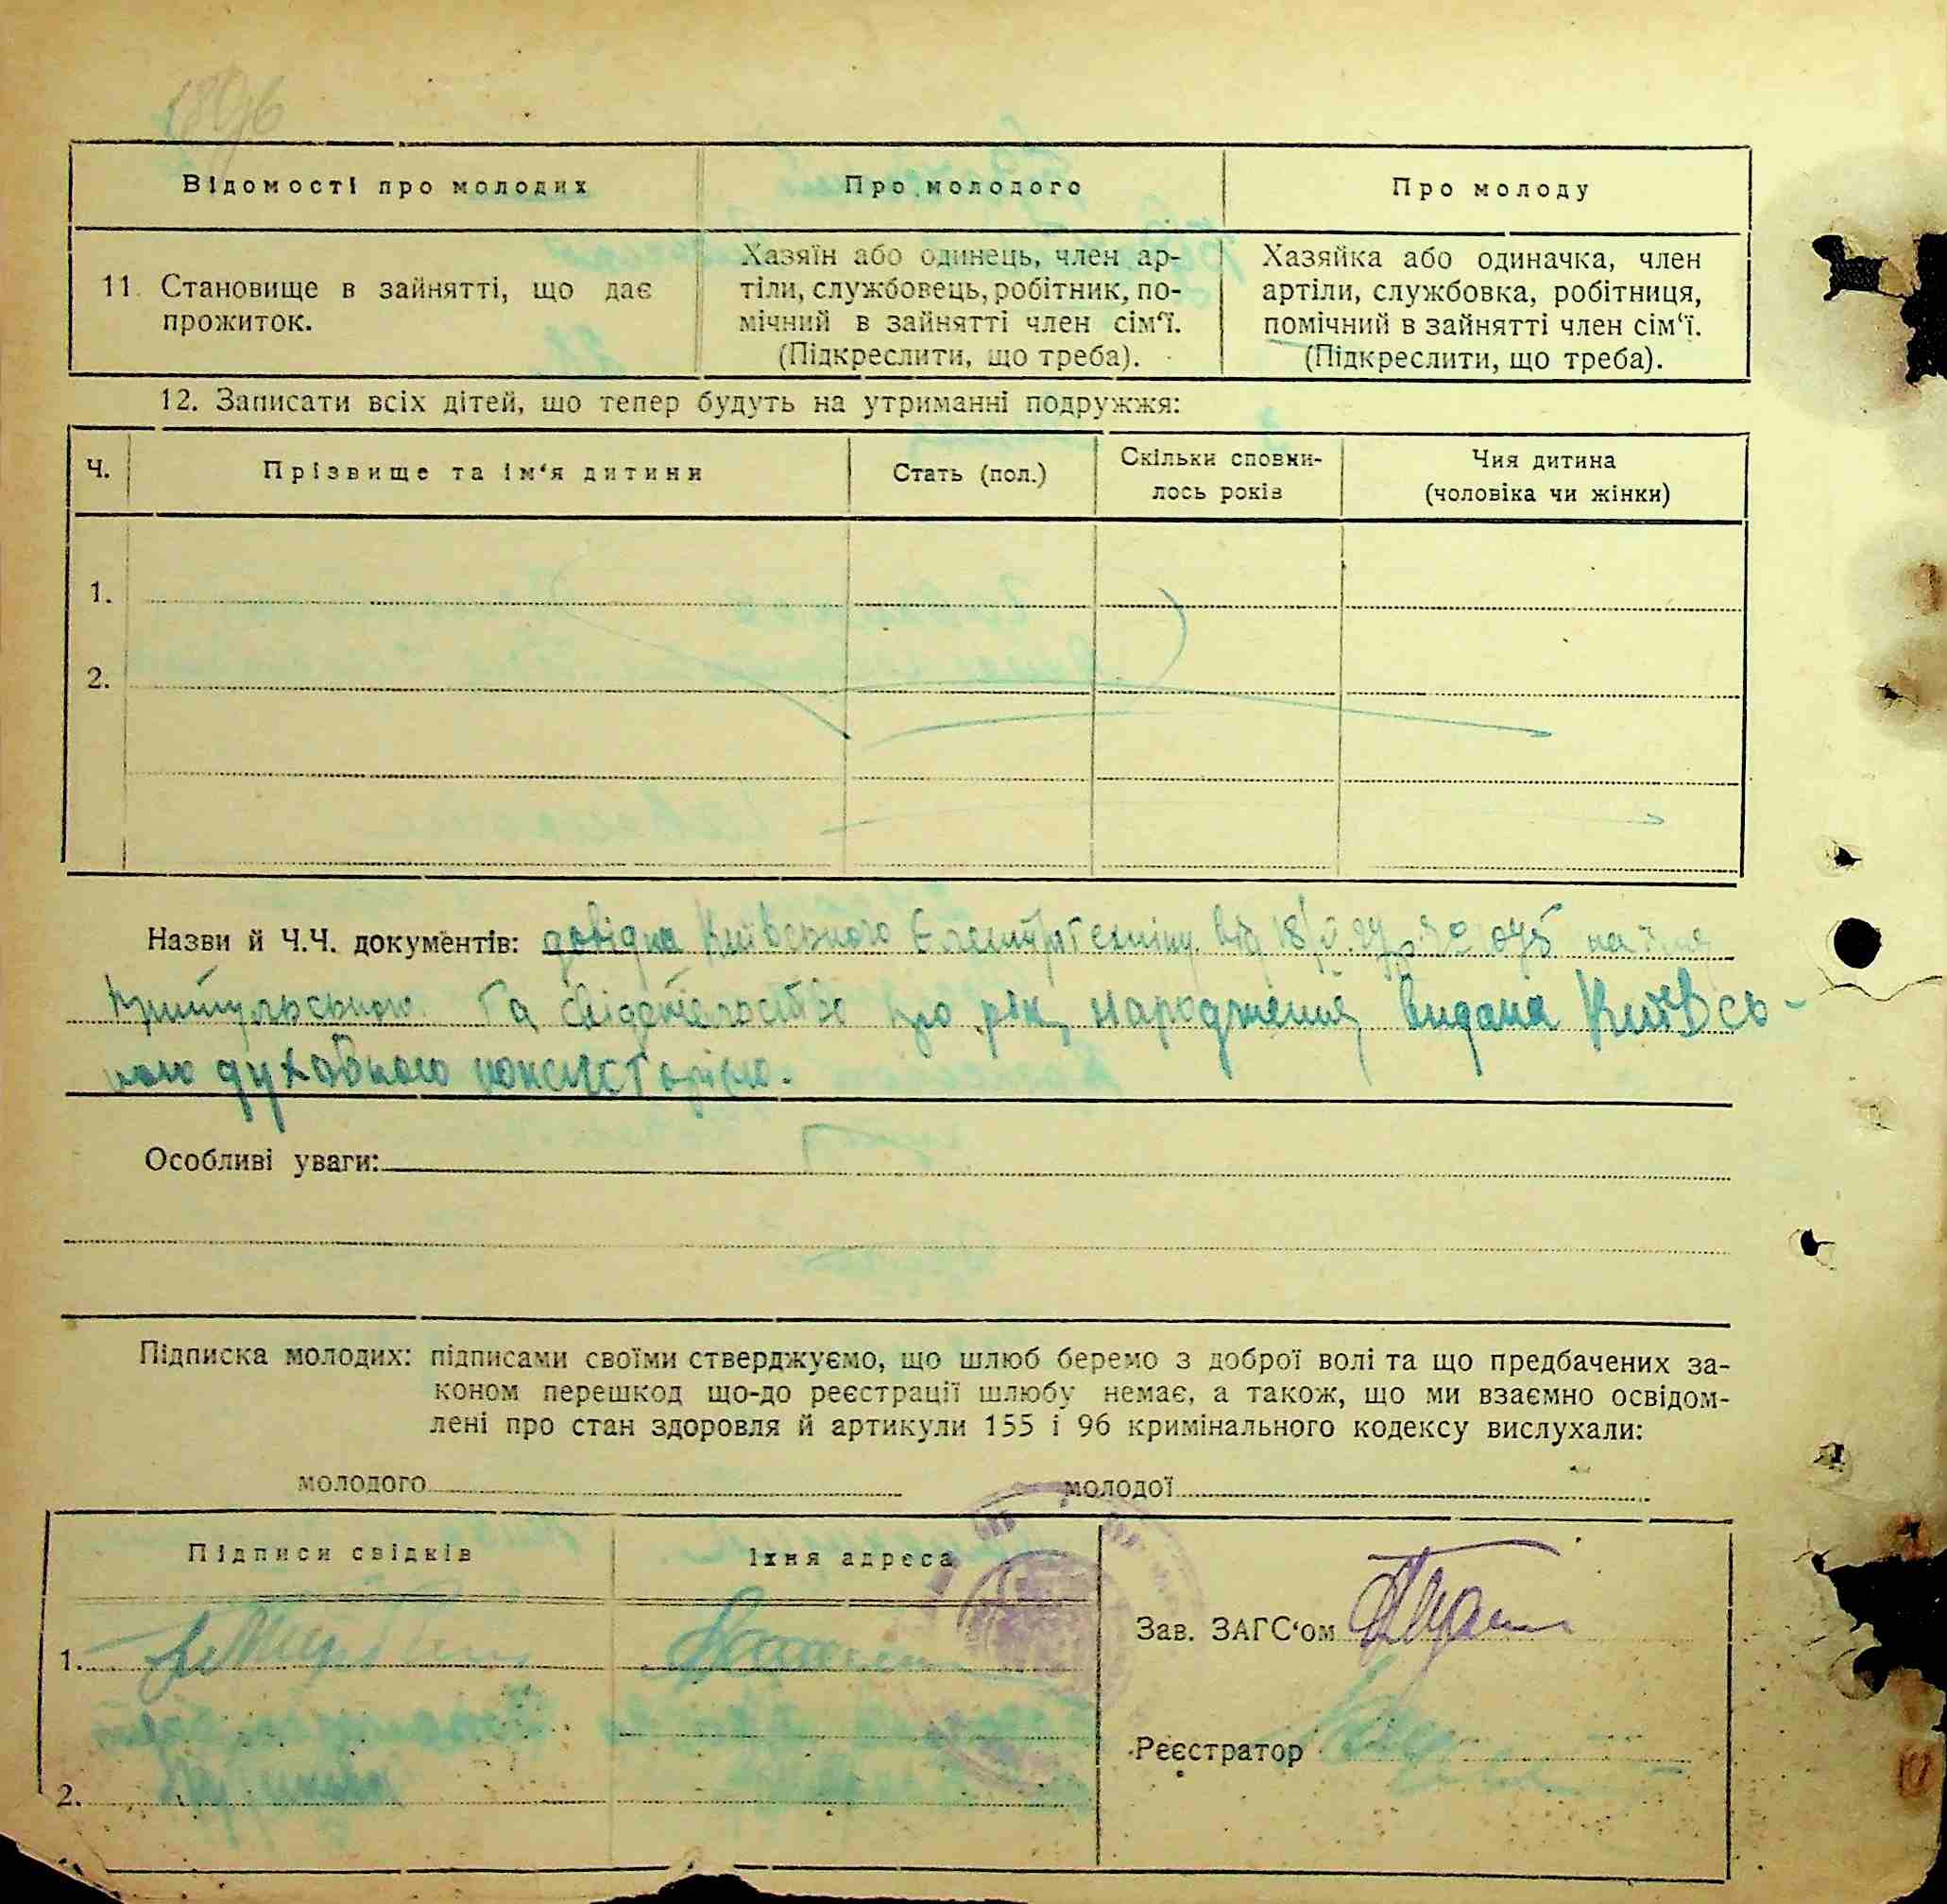 1896
Відомості про молодих Про молодого Про молоду
11. Становище в зайнятті, що дає прожиток.
Хазяїн або одинець, член ар-
тіли, службовець, робітник, по-
мічний в зайнятті член сім‘ї.
(Підкреслити, що треба).
Хазяйка або одиначка, член
артіли, службовка, робітниця,
помічний в зайнятті член сім‘ї.
(Підкреслити, що треба).
12. Записати всіх дітей, що тепер будуть на утриманні подружжя:
Ч. Прізвище та ім‘я дитини Стать (пол.) Скільки сповни-
лось років Чия дитина
(чоловіка чи жінки)
1.
2.
Назви й Ч.Ч. документів: довідка Київського від 18/V на ім'я
та свідетельство про рік народження видана Київсь-
кою духовною консисторією.
Особливі уваги:
Підписка молодих: підписами своїми стверджуємо, що шлюб беремо з доброї волі та що предбачених за-
коном перешкод що-до реєстрації шлюбу немає, а також, що ми взаємно освідом-
лені про стан здоровля й артикули 155 і 96 кримінального кодексу вислухали:
молодого молодої
Підписи свідків Їхня адреса
1.
Зав. ЗАГС‘ом
Реєстратор
2.